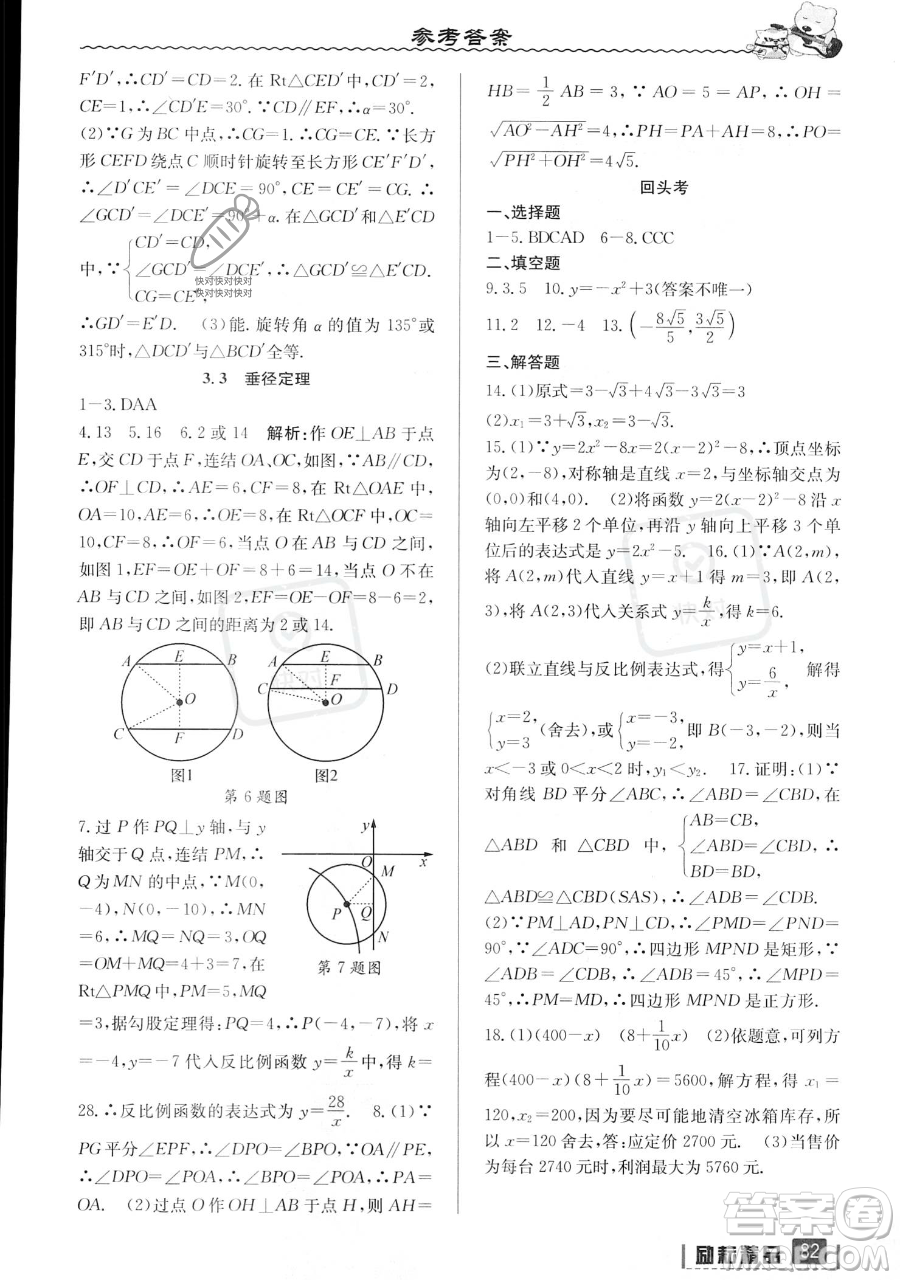 参考答案
F′D′,∴CD′=CD=2. 在 Rt△CED′中,CD′=2,
CE=1,∴∠CD′E=30°. ∵CD∥EF,∴α=30°.
(2)∵G 为 BC 中点,∴CG=1. ∴CG=CE. ∵长方
形 CEFD 绕点 C 顺时针旋转至长方形 CE′F′D′,
∴∠D′CE′=∠DCE=90°,CE=CE′=CG. ∴
∠GCD′=∠DCE′=90°+α. 在△GCD′和△DCE′
中,∵{CD′=CD,
∠GCD′=∠DCE′,
CG=CE′,
∴△GCD′≌△E′CD.
∴GD′=E′D. (3)能. 旋转角 α 的值为 135°或
315°时,△DCD′与△BCD′全等.
3.3 垂径定理
1-3. DAA
4. 13 5. 16 6. 2 或 14 解析:作 OE⊥AB 于点
E,交 CD 于点 F,连结 OA、OC,如图,∵AB∥CD,
∴OF⊥CD,∴AE=6,CF=8,在 Rt△OAE 中,
OA=10,AE=6,∴OE=8,在 Rt△OCF 中,OC=
10,CF=8,∴OF=6,当点 O 在 AB 与 CD 之间时,
如图 1,EF=OE+OF=8+6=14,当点 O 不在
AB 与 CD 之间时,如图 2,EF=OE-OF=8-6=2,
即 AB 与 CD 之间的距离为 2 或 14.
A E B O C F D
图1
A E B C F D O
图2
第 6 题图
7. 过 P 作 PQ⊥y 轴,与 y
轴交于 Q 点,连结 PM,∴
Q 为 MN 的中点,∵M(0,
-4),N(0,-10),∴MN
=6,∴MQ=NQ=3,OQ
=OM+MQ=4+3=7,在
Rt△PMQ 中,∵PM=5,MQ
y O x M P Q N
第 7 题图
=3,据勾股定理得:PQ=4,∴P(-4,-7),将 x
=-4,y=-7 代入反比例函数 y=k/x 中,得 k=
28. ∴反比例函数的表达式为 y=28/x. 8. (1)∵
PG 平分∠EPF,∴∠DPO=∠BPO,∵OA∥PE,
∴∠DPO=∠POA,∴∠BPO=∠POA,∴PA=
OA. (2)过点 O 作 OH⊥AB 于点 H,则 AH=
HB=1/2 AB=3,∵AO=5=AP,∴OH=
√(AO²-AH²)=4,∴PH=PA+AH=8,∴PO=
√(PH²+OH²)=4√5.
回头考
一、选择题
1-5. BDCAD 6-8. CCC
二、填空题
9. 3.5 10. y=-x²+3(答案不唯一)
11. 2 12. -4 13. (-8√5/5, 3√5/2)
三、解答题
14. (1)原式=3-√3+4√3-3√3=3
(2)x₁=3+√3,x₂=3-√3.
15. (1)∵y=2x²-8x=2(x-2)²-8,∴顶点坐标
为(2,-8),对称轴是直线 x=2,与坐标轴交点为
(0,0)和(4,0). (2)将函数 y=2(x-2)²-8 沿 x
轴向左平移 2 个单位,再沿 y 轴向上平移 3 个单
位后的表达式是 y=2x²-5. 16. (1)∵A(2,m),
将 A(2,m)代人直线 y=x+1 得 m=3,即 A(2,
3),将 A(2,3)代人关系式 y=k/x,得 k=6.
(2)联立直线与反比例表达式,得{y=x+1, y=6/x, 解得
{x=2, y=3 (舍去),或{x=-3, y=-2, 即 B(-3,-2),则当
x<-3 或 0<x<2 时,y₁<y₂. 17. 证明:(1)∵
对角线 BD 平分∠ABC,∴∠ABD=∠CBD,在
△ABD 和 △CBD 中,{AB=CB,
∠ABD=∠CBD,
BD=BD,
△ABD≌△CBD(SAS),∴∠ADB=∠CDB.
(2)∵PM⊥AD,PN⊥CD,∴∠PMD=∠PND=
90°,∵∠ADC=90°,∴四边形 MPND 是矩形,∵
∠ADB=∠CDB,∴∠ADB=45°,∴∠MPD=
45°,∴PM=MD,∴四边形 MPND 是正方形.
18. (1)(400-x) (8+1/10x) (2)依题意,可列方
程(400-x)(8+1/10x)=5600,解方程,得 x₁=
120,x₂=200,因为要尽可能地清空冰箱库存,所
以 x=120 舍去,答:应定价 2700 元. (3)当售价
为每台 2740 元时,利润最大为 5760 元.
快对快对快对
快对快对快对
快对
答案圈
MXQE.COM
励耘精品 82